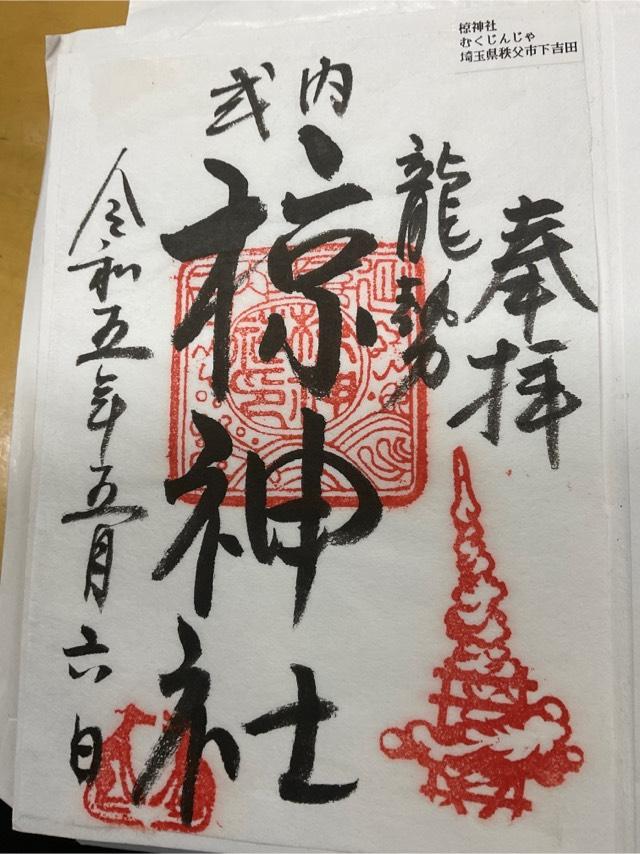 椋神社
むくじんじゃ
埼玉県秩父市下吉田
奉拝
龍勢
式内
椋神社
令和五年五月六日